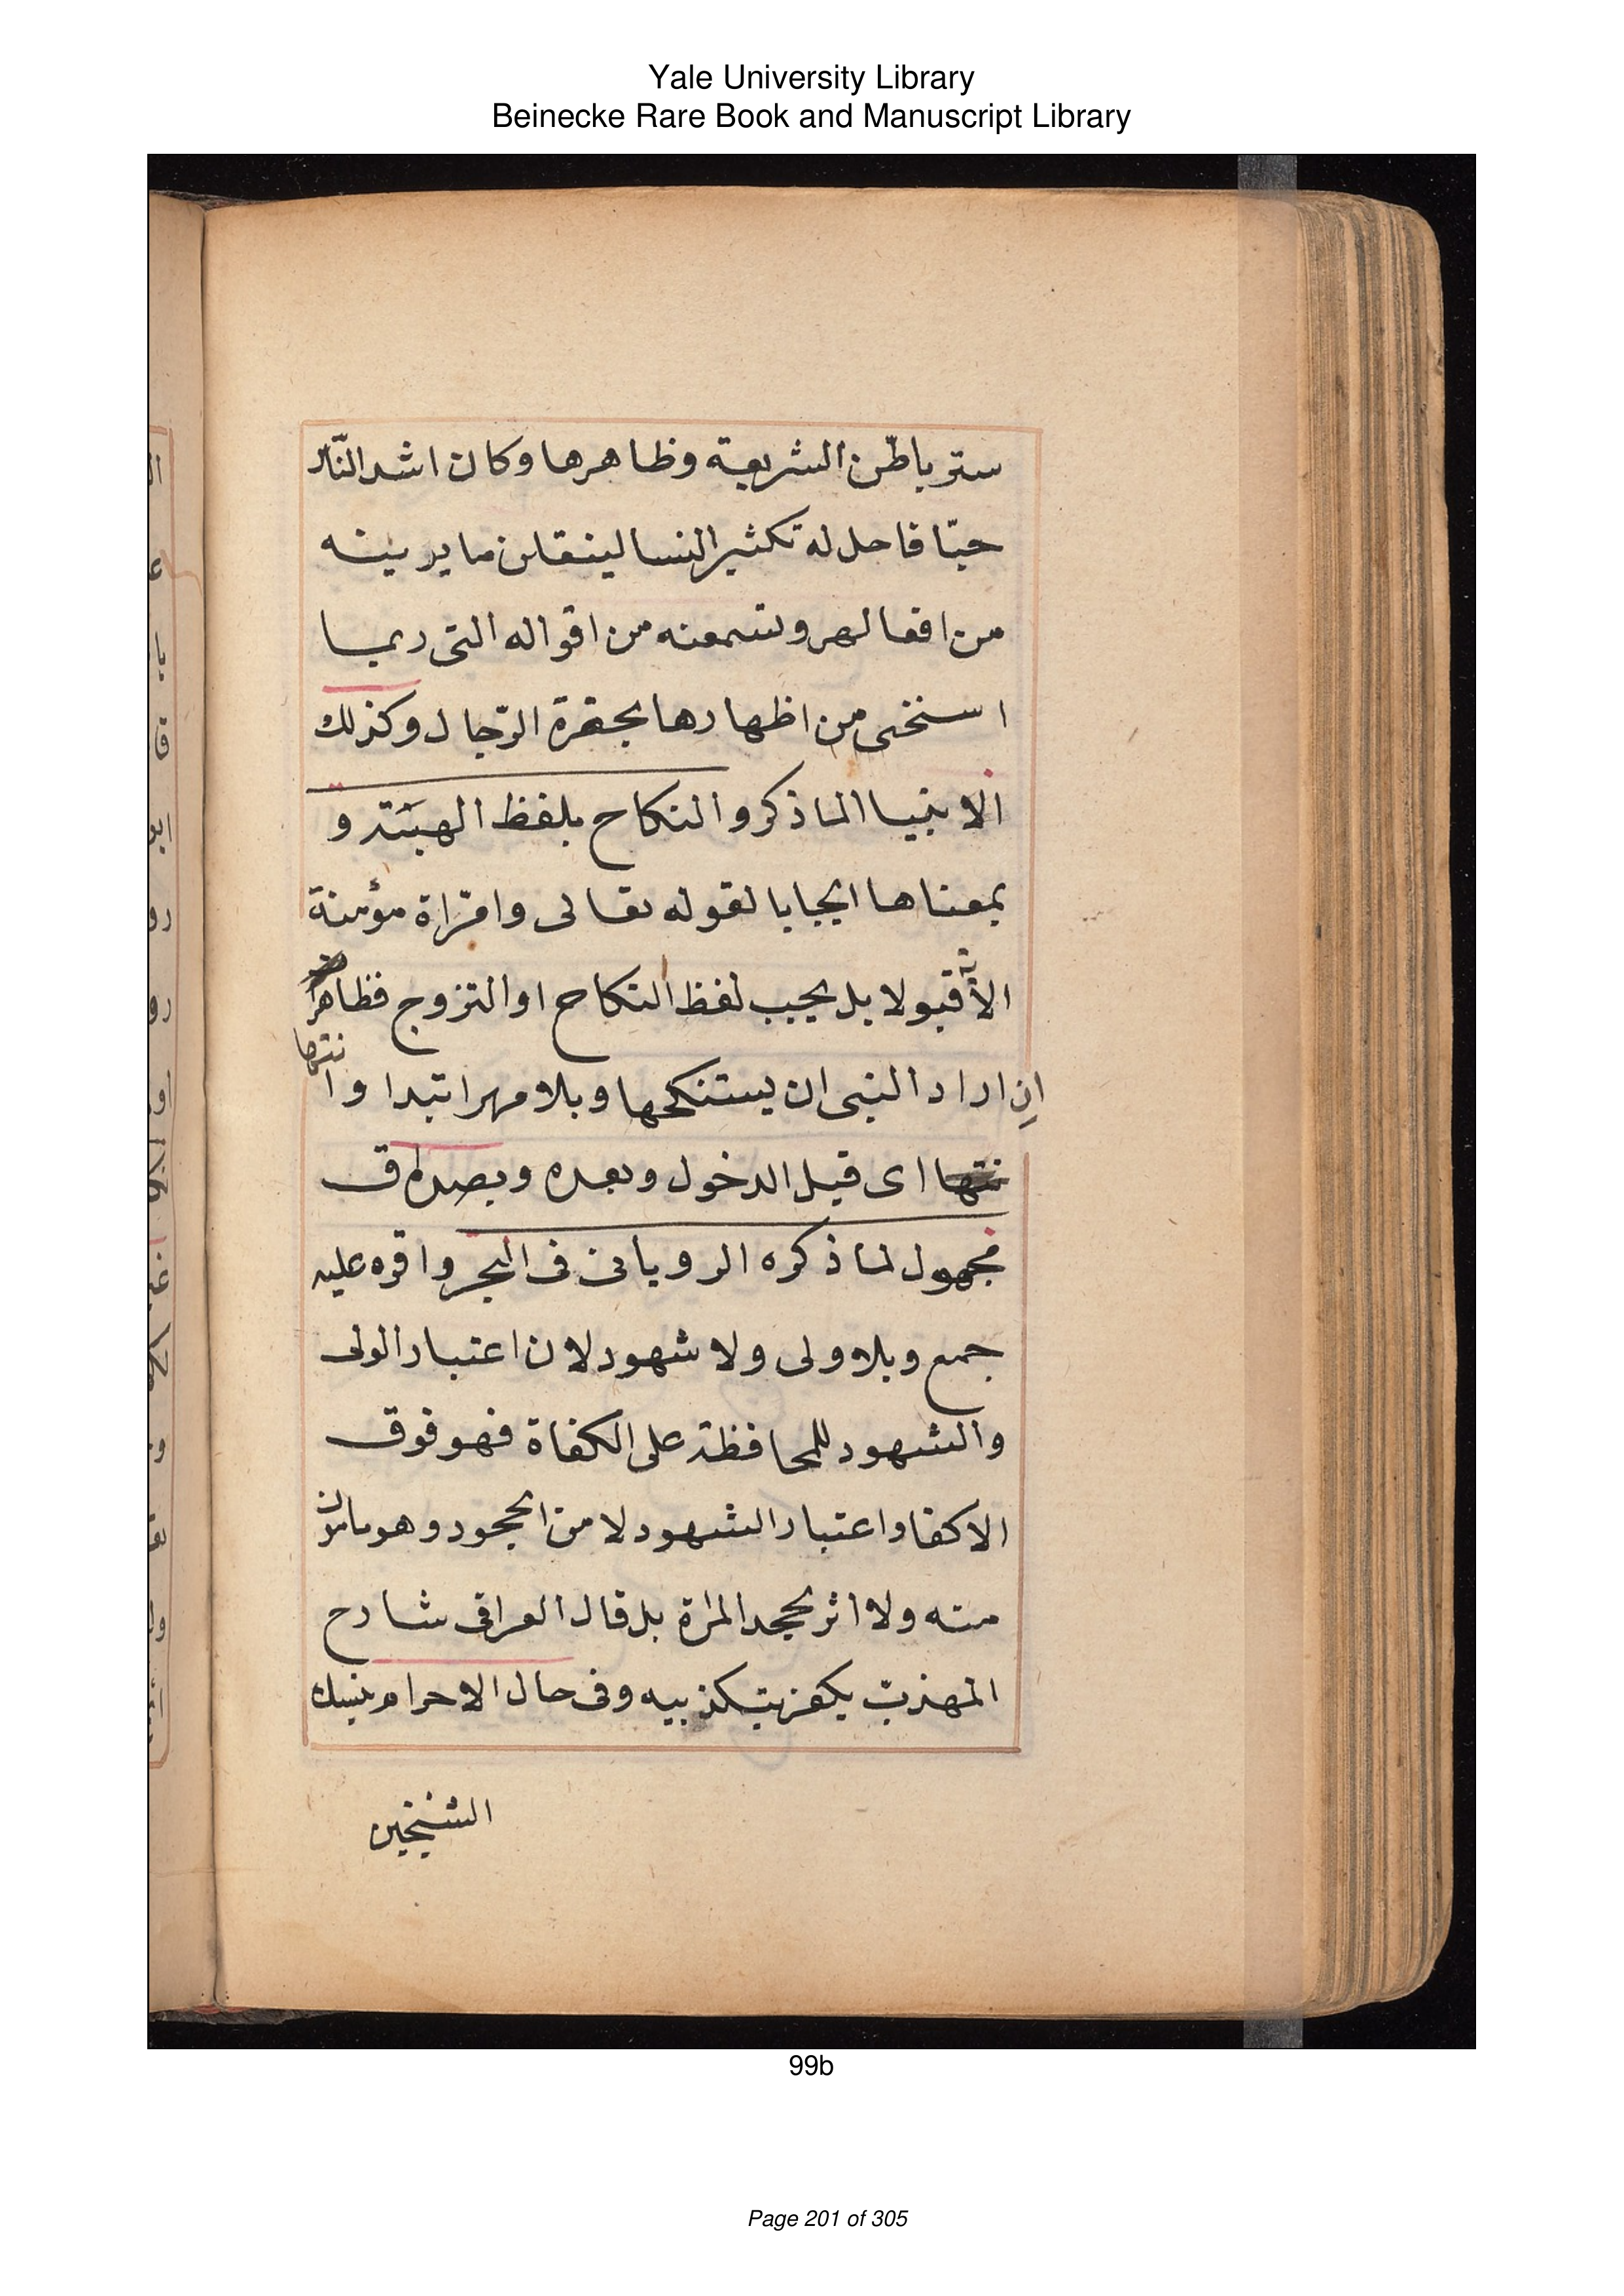 Yale University Library
Beinecke Rare Book and Manuscript Library
ستر باطن الشريعة وظاهرها وكان اشد النّاس
حبّا فاحل له تكثير النسا لينقلن ما يرينه
من افعالهر وتسمعنه من اقواله التى ربما
استخى من اظهارها بحضرة الرّجال وكذلك
الانبيا الما ذكر والنكاح بلفظ الهبته و
بمعناها ايجابا لقوله تعالى وامراة مؤمنة
الآية قبولا بل يجب لفظ النكاح او التزوج فظاهر
اِن اراد النبى ان يستنكحها وبلا مهر ابتدا وا نتها
اى قبل الدخول وبعده وبصداق
مجهول لما ذكره الرويانى فى البحر واقره عليه
جمع وبلا ولى ولا شهود لان اعتبار الولى
والشهود للمحافظة على الكفاة فهو فوق
الاكفا واعتبار الشهود لا من الجحود وهو مامون
منه ولا اثر بجحد المراة بل قال العراقى شارح
المهذبّ يكفر بتكذبيه وفى حال الاحرام بنسك
الشيخين
99b
Page 201 of 305